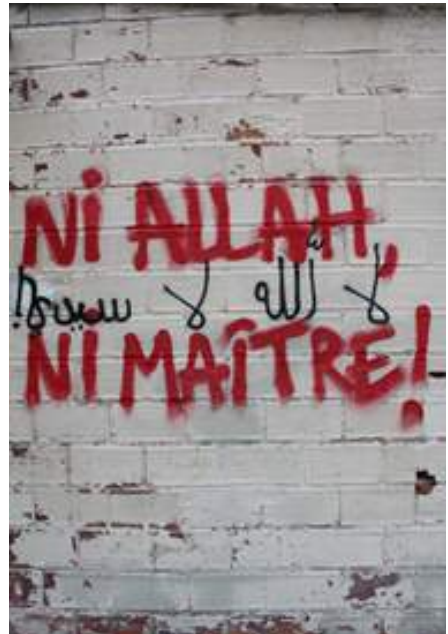 NI ALLAH,
لا ألله لا سيدي!
NI MAÎTRE!